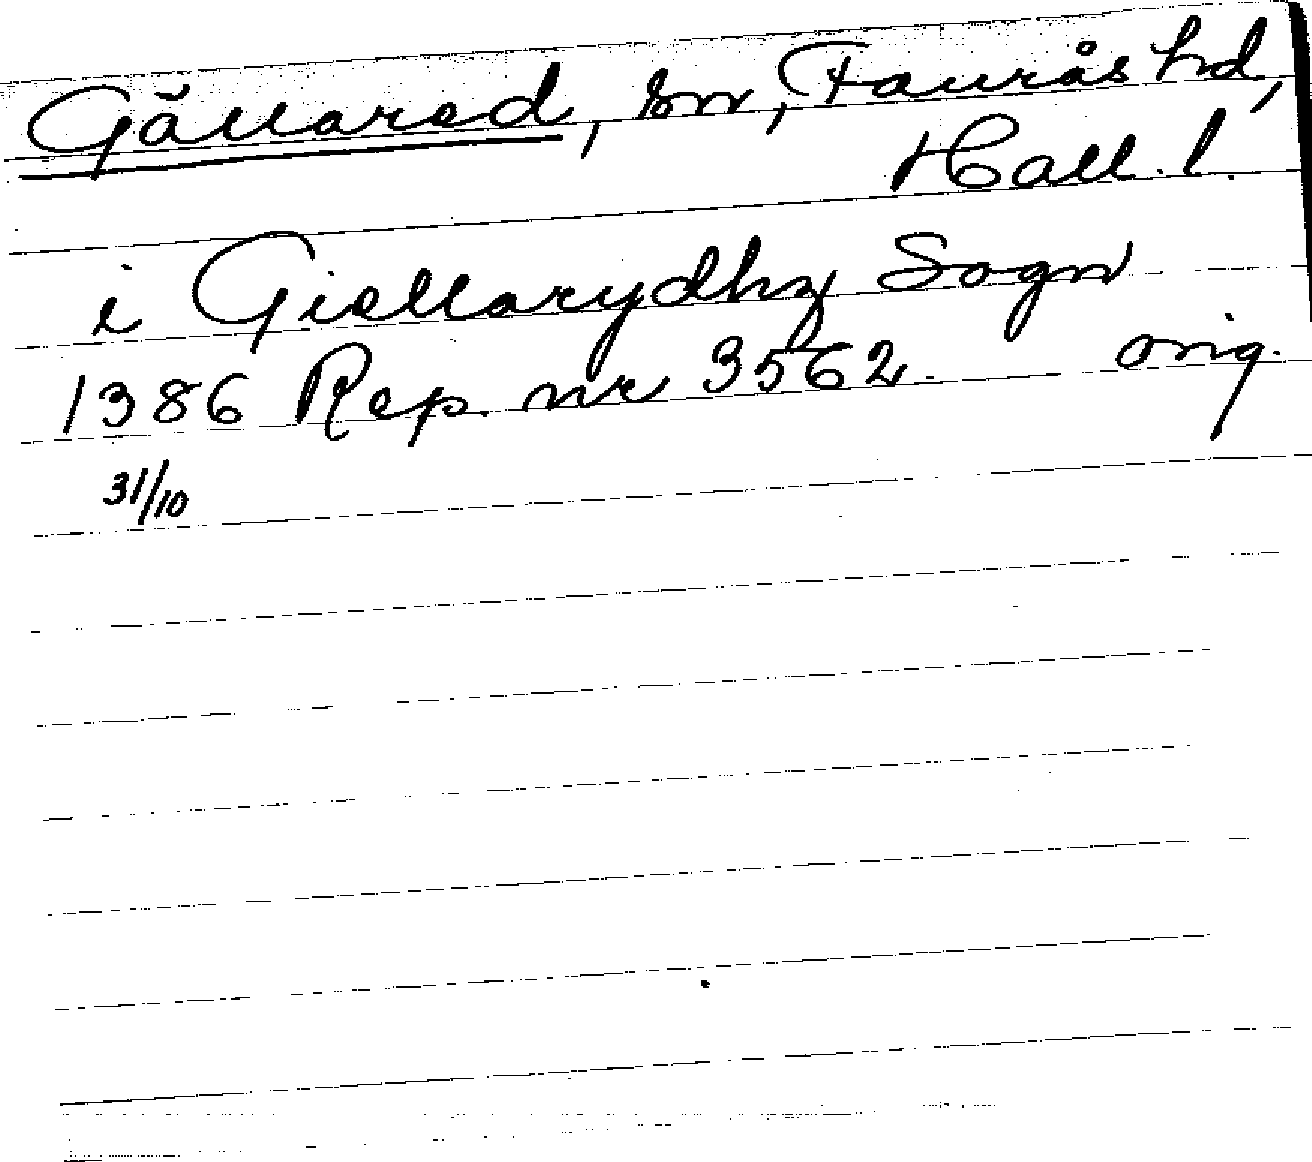 Gällared, sn, Faurås hd,
Hall. l.
i Giællarydhz Sogn
1386 Rep. nr 3562. orig.
31/10